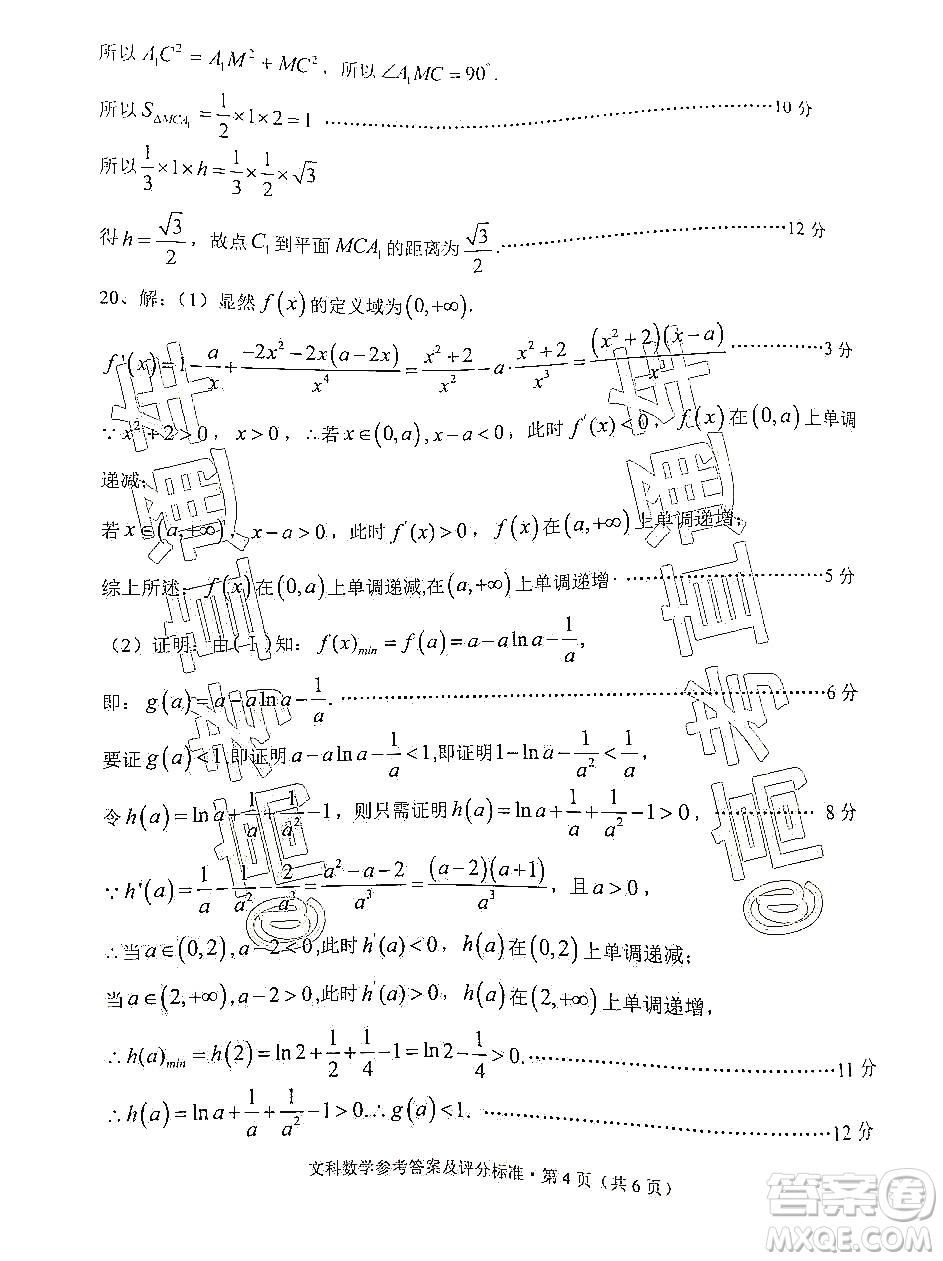 所以 A₁C² = A₁M² + MC²，所以 ∠A₁MC = 90°.
所以 S_{ΔMCA₁} = 1/2 × 1 × 2 = 1 ………………10 分
所以 1/3 × 1 × h = 1/3 × 1/2 × √3
得 h = √3/2，故点 C₁ 到平面 MCA₁ 的距离为 √3/2. ………………12 分
20、解：(1) 显然 f(x) 的定义域为 (0,+∞).
f'(x) = 1 - a/x + (-2x² - 2x(a-2x))/x⁴ = (x²+2)/x² - a·(x²+2)/x³ = (x²+2)(x-a)/x³ ………3 分
∵ x²+2>0，x>0，∴若 x∈(0,a), x-a<0，此时 f'(x)<0，f(x) 在 (0,a) 上单调
递减；
若 x∈(a,+∞)，x-a>0，此时 f'(x)>0，f(x) 在 (a,+∞) 上单调递增；
综上所述：f(x) 在 (0,a) 上单调递减,在 (a,+∞) 上单调递增 ………………5 分
（2）证明：由（1）知：f(x)_{min} = f(a) = a - a ln a - 1/a,
即：g(a) = a - a ln a - 1/a. ………………6 分
要证 g(a)<1,即证明 a - a ln a - 1/a < 1,即证明 1 - ln a - 1/a² < 1/a，
令 h(a) = ln a + 1/a + 1/a² - 1，则只需证明 h(a) = ln a + 1/a + 1/a² - 1 > 0，………… 8 分
∵ h'(a) = 1/a - 1/a² - 2/a³ = (a²-a-2)/a³ = (a-2)(a+1)/a³，且 a>0，
∴当 a∈(0,2), a-2<0,此时 h'(a)<0，h(a) 在 (0,2) 上单调递减；
当 a∈(2,+∞), a-2>0,此时 h'(a)>0，h(a) 在 (2,+∞) 上单调递增，
∴ h(a)_{min} = h(2) = ln 2 + 1/2 + 1/4 - 1 = ln 2 - 1/4 > 0. ………………11 分
∴ h(a) = ln a + 1/a + 1/a² - 1 > 0. ∴ g(a)<1. ………………12 分
文科数学参考答案及评分标准·第 4 页（共 6 页）
答案卷
MXQE.COM